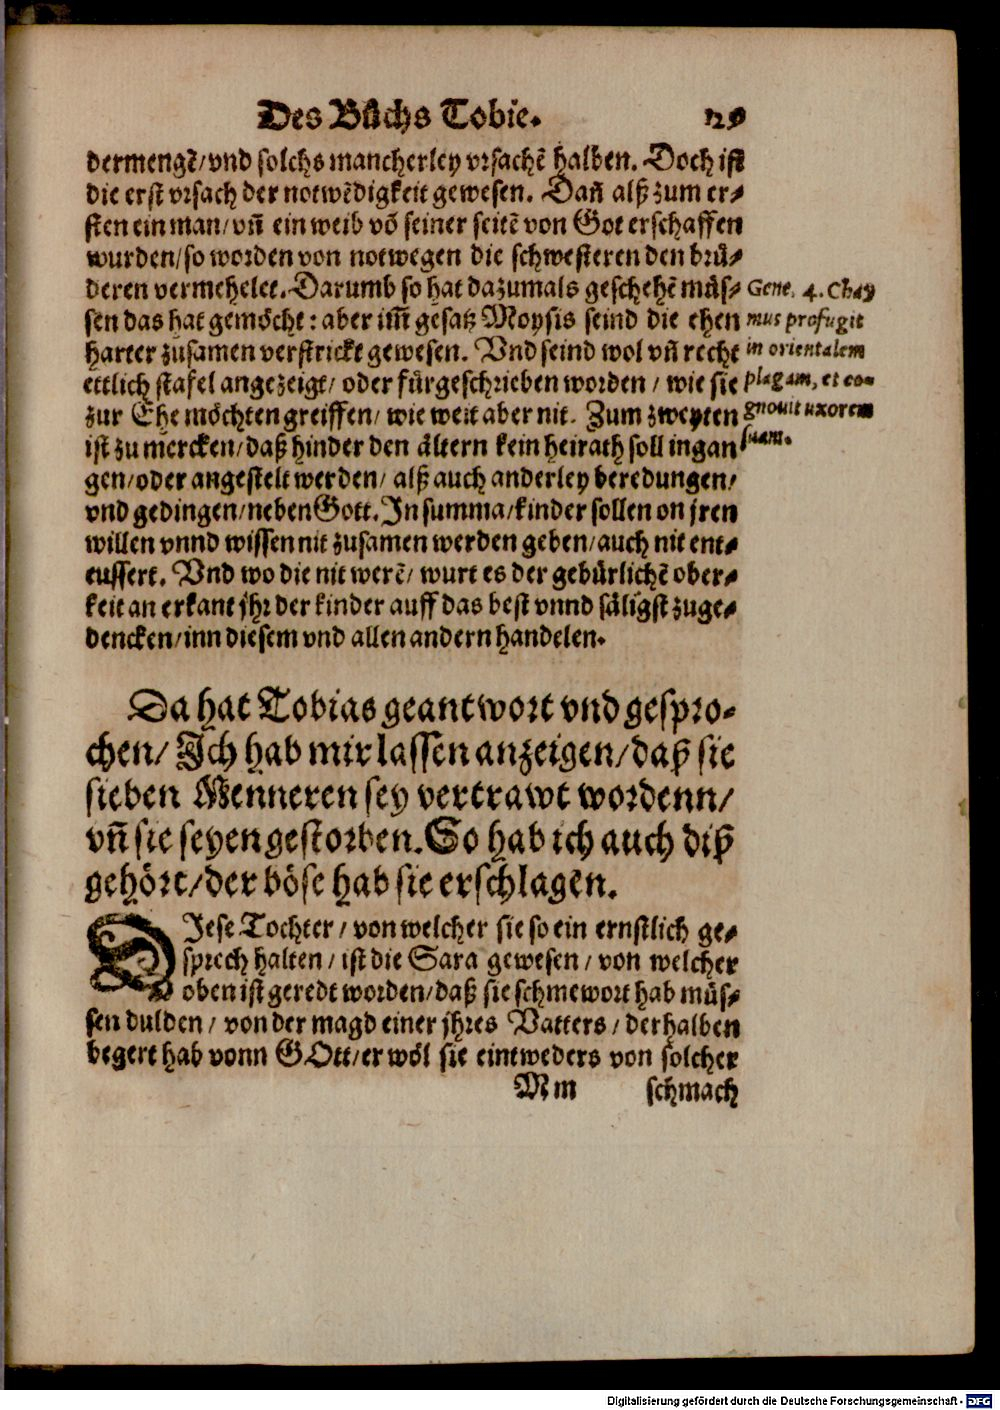 Des Bůchs Tobie.
dermengē/vnd solchs mancherley vrsachē halben. Doch ist
die erst vrsach der notwēdigkeit gewesen. Dañ alß zum er-
sten ein man/vñ ein weib võ seiner seitē von Got erschaffen
wurden/so worden von notwegen die schwesteren den brů-
deren vermehelet. Darumb so hat dazumals geschehē můs-
sen das hat gemöcht: aber im̃ gesatz Moysis seind die ehen
harter zusamen verstrickt gewesen. Vnd seind wol vñ recht
ettlich stafel angezeigt/ oder fürgeschrieben worden/ wie sie
zur Ehe möchten greiffen/ wie weit aber nit. Zum zweyten
ist zu mercken/daß hinder den ältern kein heirath soll ingan
gen/oder angestelt werden/ alß auch anderley beredungen/
vnd gedingen/neben Gott. In summa/kinder sollen on jren
willen vnnd wissen nit zusamen werden geben/auch nit ent-
eussert. Vnd wo die nit werē/ wurt es der gebürlichē ober-
keit an erkant jhr der kinder auff das best vnnd säligst zuge-
dencken/inn diesem vnd allen andern handelen.
Gene. 4. Chay
mus profugit
in orientalem
plagam, et co-
gnouit uxorem
suam.
Da hat Tobias geantwort vnd gespro-
chen/ Ich hab mir lassen anzeigen/daß sie
sieben Menneren sey vertrawt wordenn/
vñ sie seyen gestorben. So hab ich auch diß
gehört/der böse hab sie erschlagen.
DIese Tochter/ von welcher sie so ein ernstlich ge-
sprech halten/ ist die Sara gewesen/ von welcher
oben ist geredt worden/daß sie schmewort hab můs-
sen dulden/ von der magd einer jhres Vatters/ derhalben
begert hab vonn GOtt/er wöl sie eintweders von solcher
Mm schmach
Digitalisierung gefördert durch die Deutsche Forschungsgemeinschaft - DFG